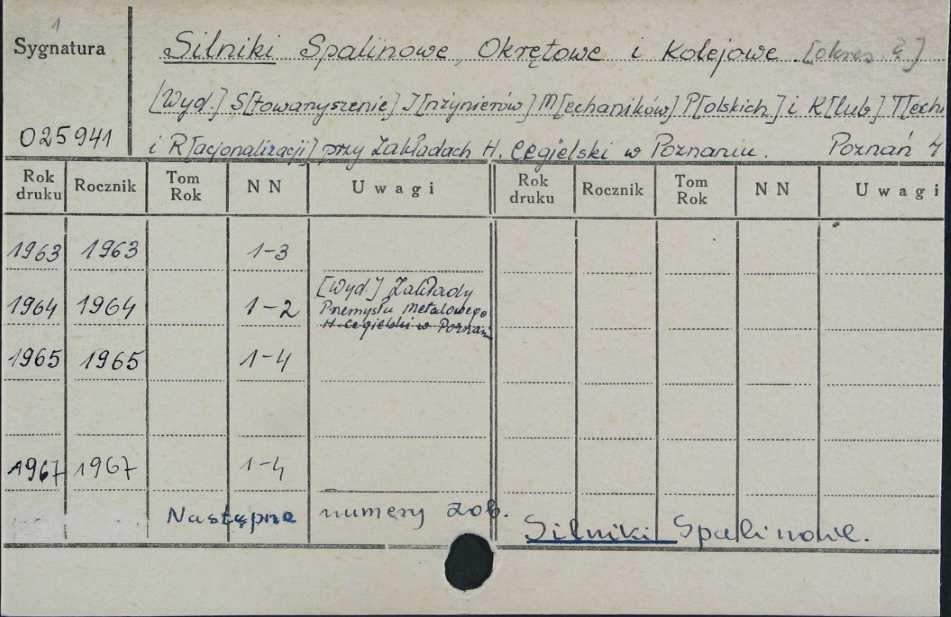 1
Sygnatura
025941
Silniki Spalinowe, Okrętowe i Kolejowe [okres ]
[Wyd.] S[towarzyszenie] I[nżynierów] M[echaników] P[olskich] i K[lub] T[ech
i R[acjonalizacji] przy Zakładach H. Cegielski w Poznaniu. Poznań 4
Rok druku Rocznik Tom Rok NN Uwagi Rok druku Rocznik Tom Rok NN Uwagi
1963 1963 1-3
1964 1964 1-2 [Wyd.] Zakłady
Przemysłu Metalowego
H. Cegielski w Poznan
1965 1965 1-4
1967 1967 1-4
Następne numery zob. Silniki Spalinowe.